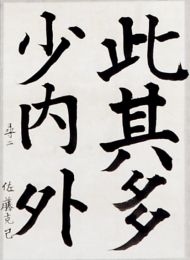 此其多
少内外
尋二
佐藤克己